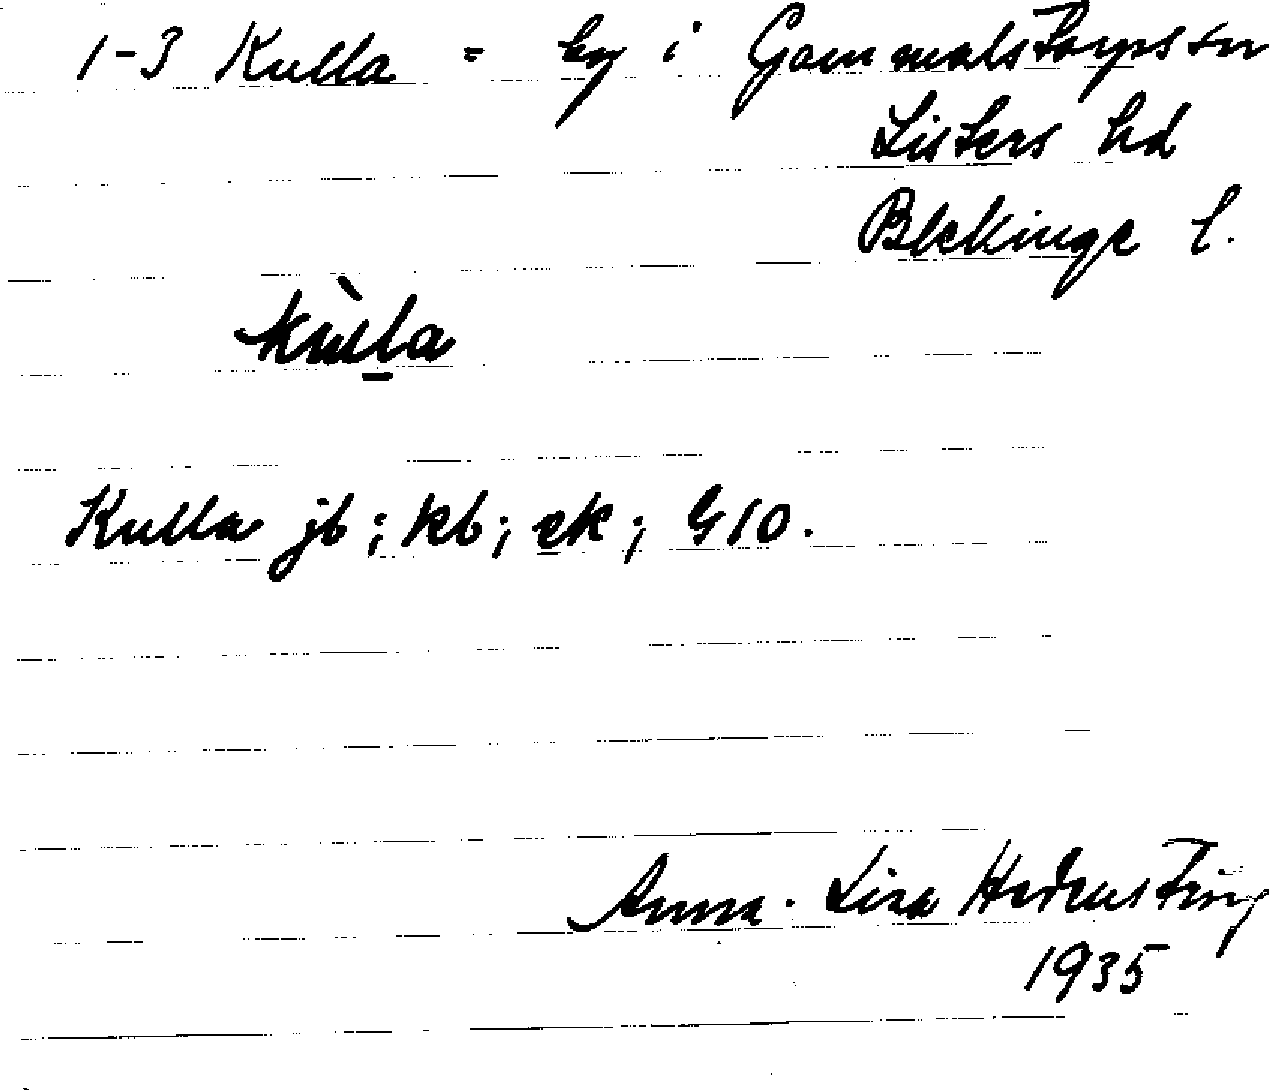 1-3 Kulla = by i Gammalstorps sn
Listers hd
Blekinge l.
kùl̠a
Kulla jb; kb; ek; G10.
Anna-Lisa Hedenstierna
1935